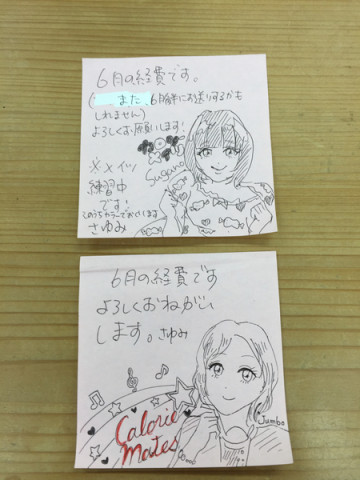 6月の経費です。
(また、6月中にお送りするかも
しれません)
よろしくお願いします!
Sugano
※メイツ
練習中
です!
このうちカラーでおくります
さゆみ
6月の経費です
よろしくおねがい
します。さゆみ
Calorie
Mates
Jumbo